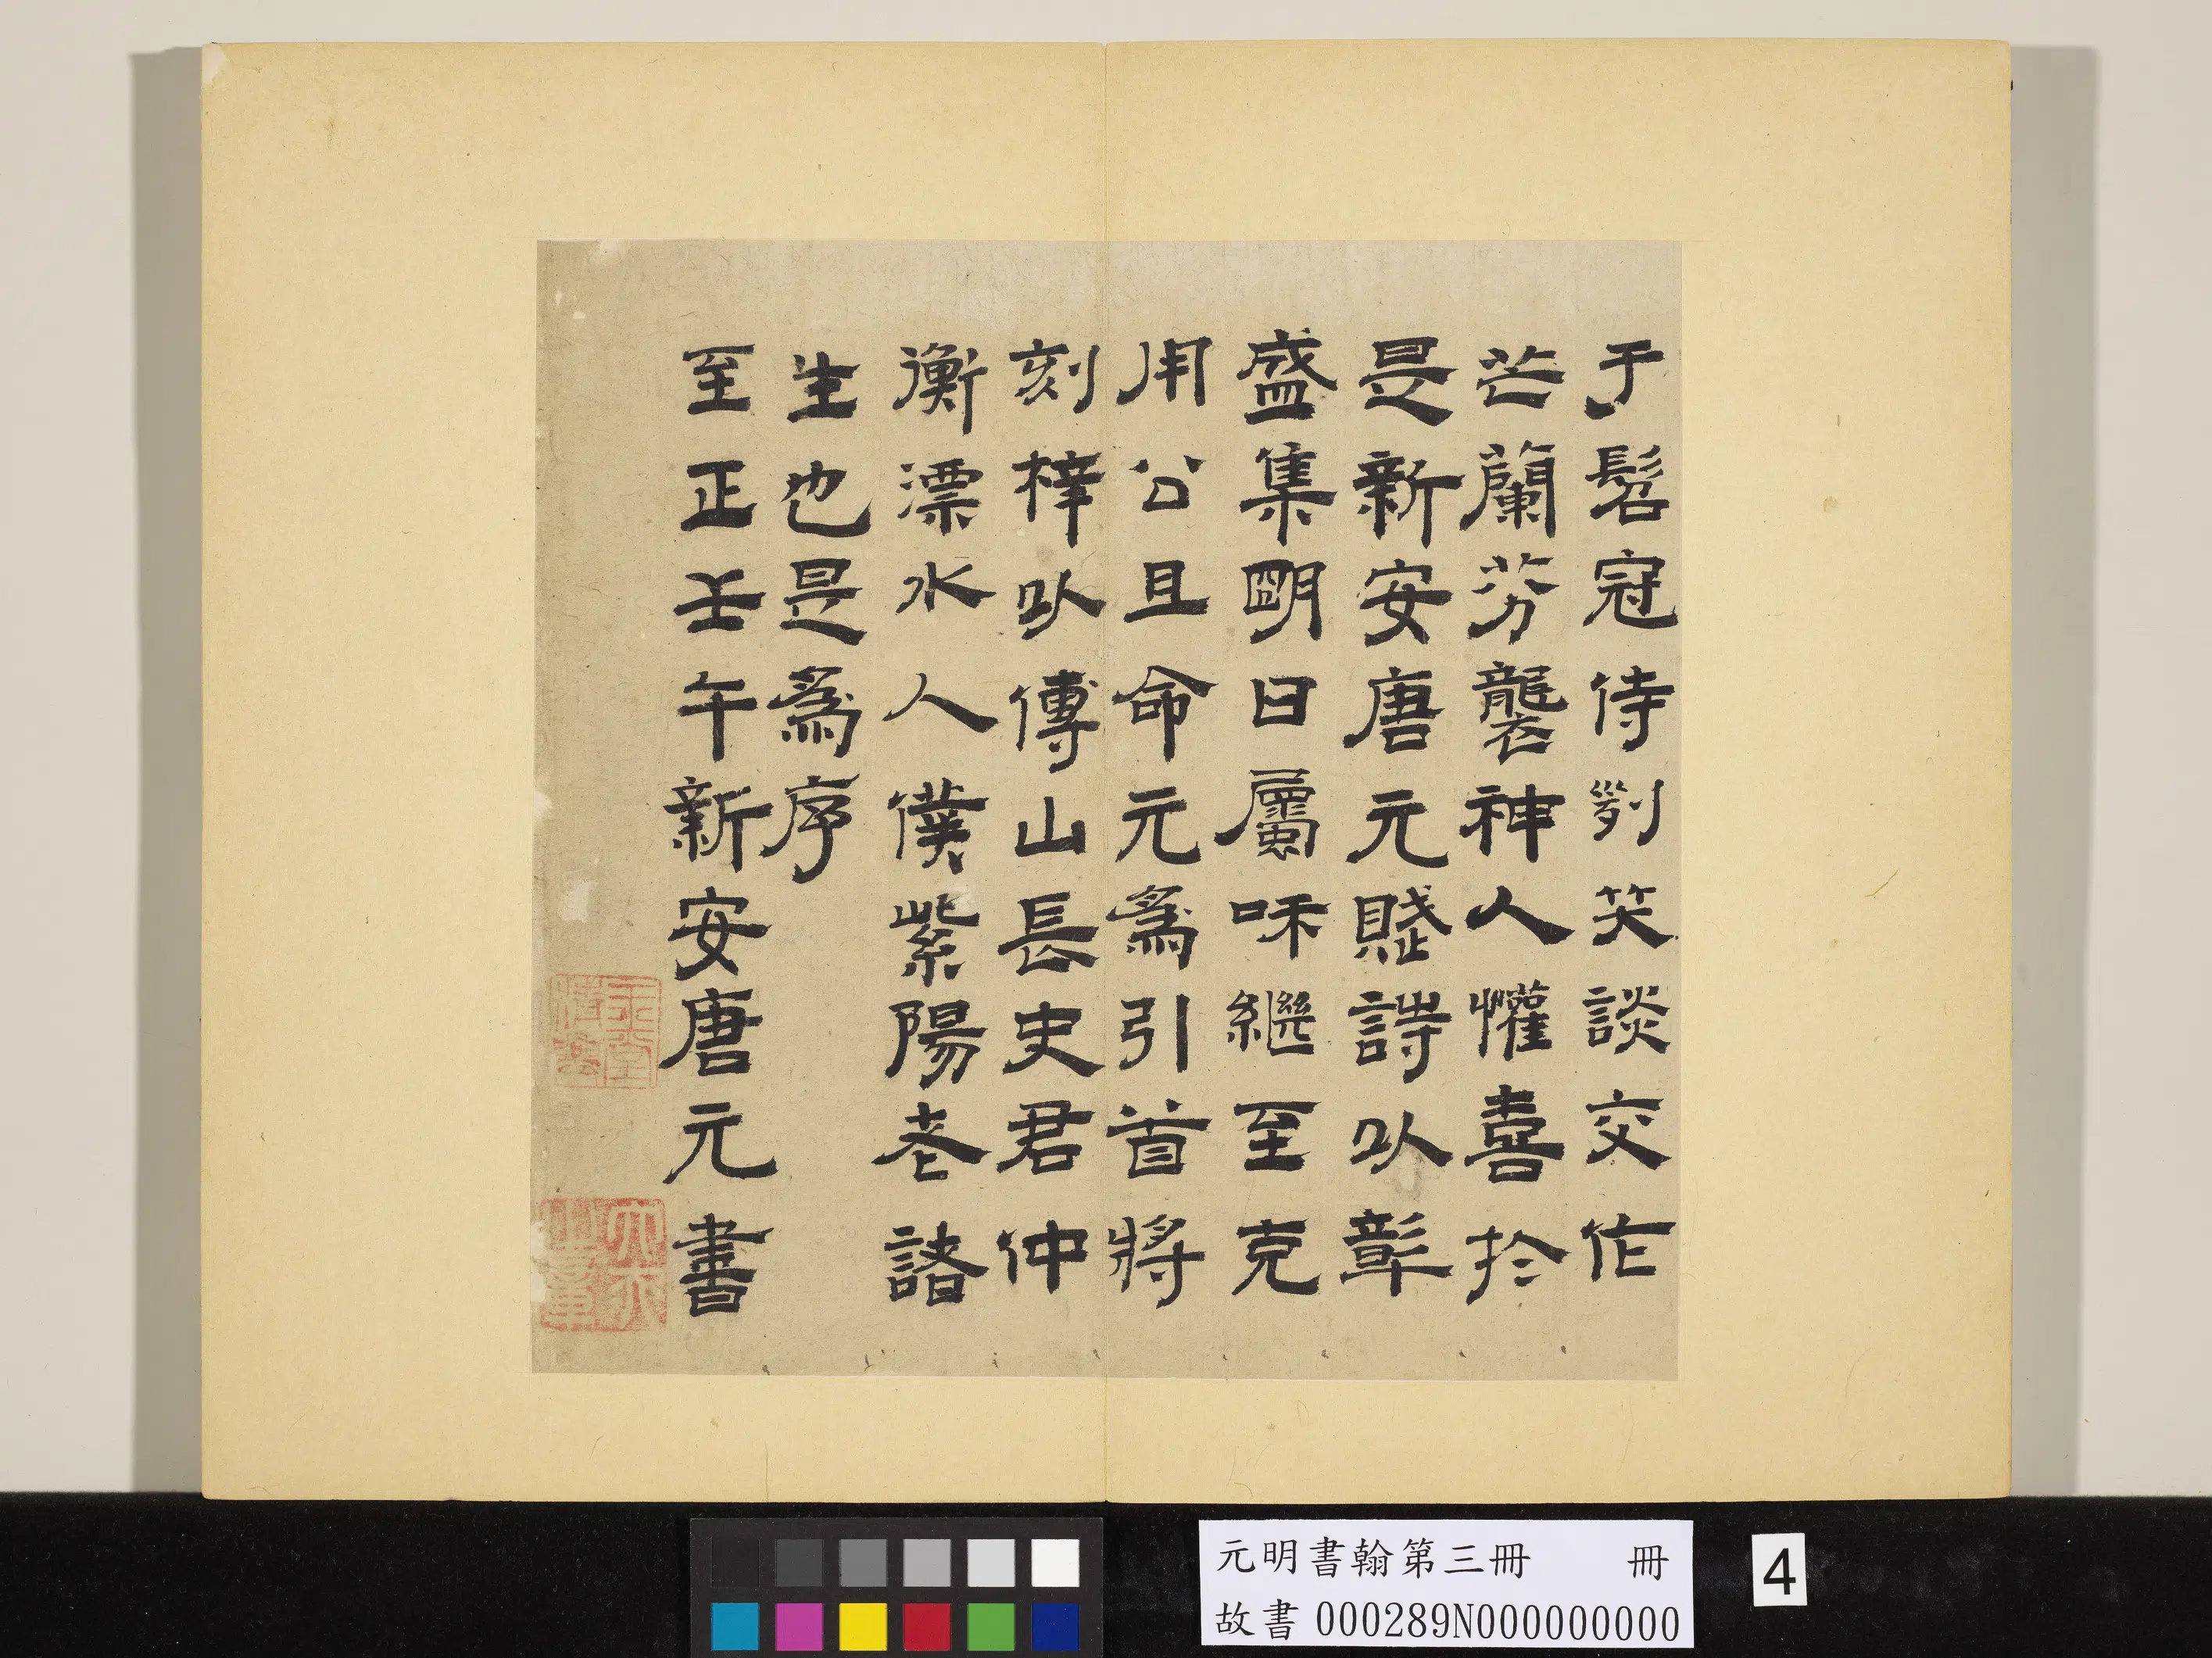 于髫冠侍劄笑談交作
芒蘭芬襲神人懽喜於
是新安唐元賦詩以彰
盛集明日屬和繼至克
用公且命元為引首將
刻梓以傳山長史君仲
衡漂水人僕紫陽老諮
生也是為序
至正壬午新安唐元書
元明書翰第三冊 冊
故書 000289N000000000
4